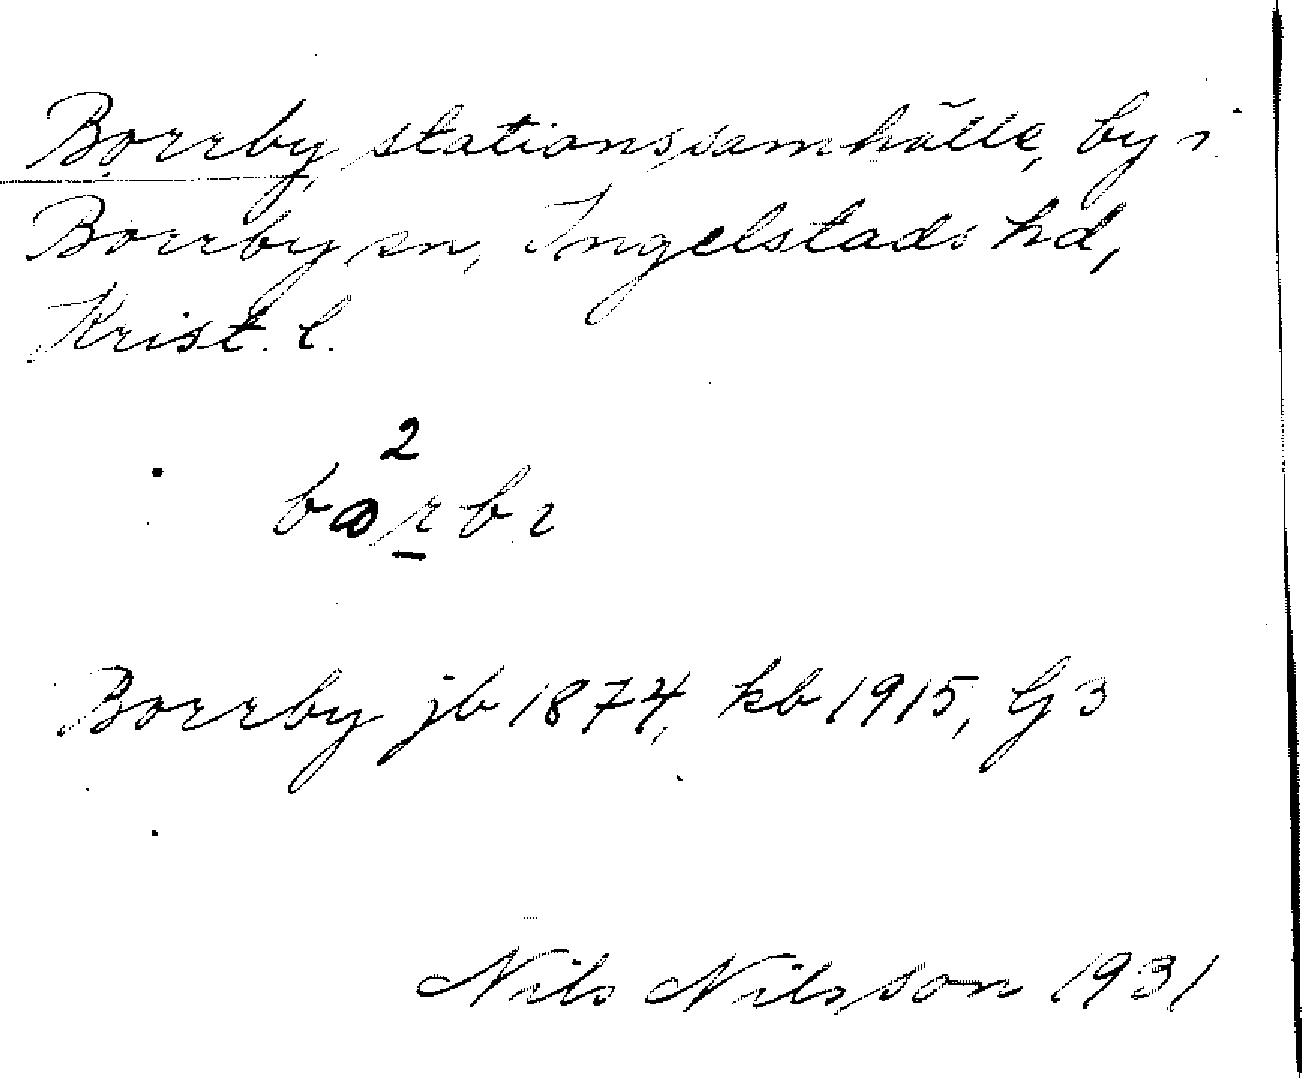 Borrby, stationssamhälle, by i
Borrby sn, Ingelstads hd,
Krist. l.
2
Borrby jb 1874, kb 1915, G3
Nils Nilsson 1931